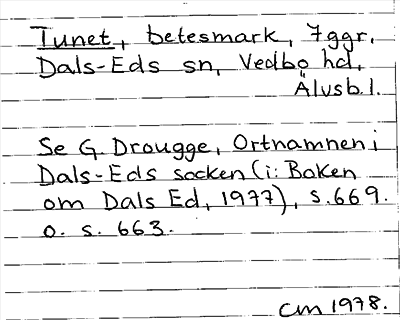 Tunet, betesmark, 7 ggr,
Dals-Eds sn, Vedbo hd,
Älvsb. l.
Se G. Drougge, Ortnamnen i
Dals-Eds socken (i: Boken
om Dals Ed, 1977), s. 669.
o. s. 663.
CM 1978.